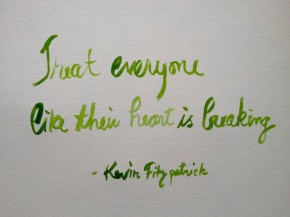 Treat everyone
like their heart is breaking
- Kevin Fitzpatrick